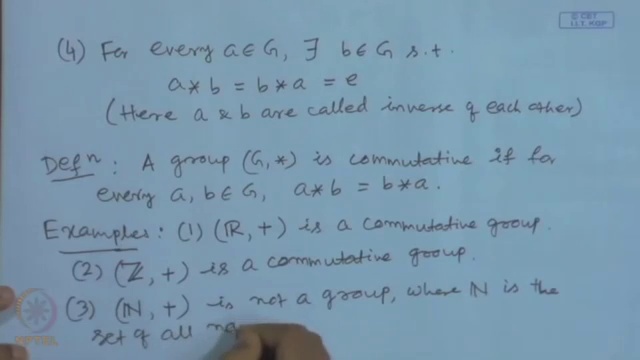 © CET
I.I.T. KGP
(4) For every a ∈ G, ∃ b ∈ G s.t.
a * b = b * a = e
(Here a & b are called inverse of each other)
Defⁿ: A group (G, *) is commutative if for
every a, b ∈ G, a * b = b * a.
Examples: (1) (ℝ, +) is a commutative group.
(2) (ℤ, +) is a commutative group.
(3) (ℕ, +) is not a group, where ℕ is the
set of all na
NPTEL